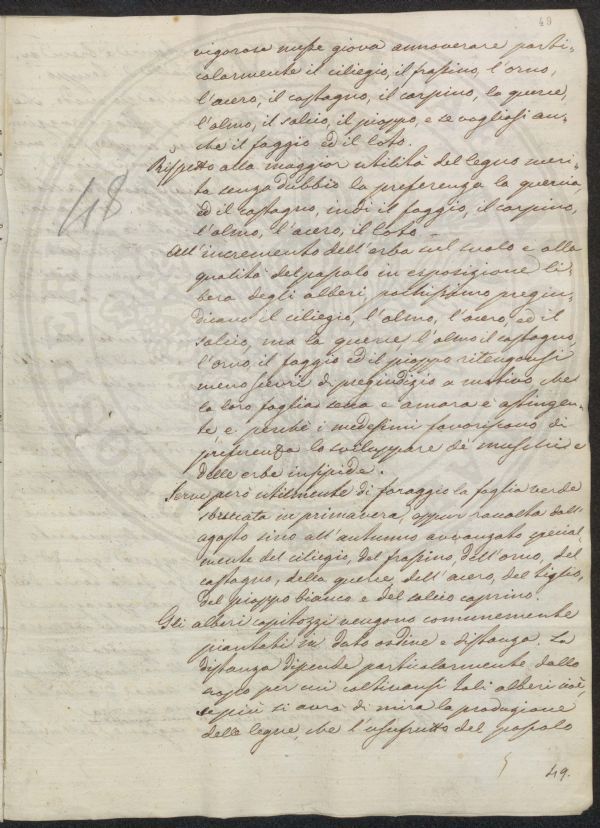 49
vigorose messe giova annoverare parti-
colarmente il ciliegio, il frassino, l'orno,
l'acero, il castagno, il carpino, la querce,
l'olmo, il salcio, il pioppo, e se vogliasi an-
che il faggio ed il loto.
Rispetto alla maggior utilità del legno meri-
ta senza dubbio la preferenza la quercia
ed il castagno, indi il faggio, il carpino,
48
l'olmo, l'acero, il loto.
All'incremento dell'erba sul suolo e alla
qualità del pascolo in esposizione li-
bera degli alberi, pochissimo pregiu-
dicano il ciliegio, l'olmo, l'acero, ed il
salcio, ma la querce l'olmo il castagno,
l'orno, il faggio ed il pioppo ritengonsi
meno scevri di pregiudizio a motivo, che
la loro foglia secca e amara e astringen-
te e perchè i medesimi favoriscono di
preferenza lo sviluppare de' muschi e
delle erbe insipide.
Serve però utilmente di foraggio la foglia verde
sbrucata in primavera, oppur raccolta dall'
agosto sino all'autunno avvanzato special-
mente del ciliegio, del frassino, dell'orno, del
castagno, della querce, dell'acero, del tiglio,
del pioppo bianco e del salcio caprino.
Gli alberi capitozzi vengono comunemente
piantati in dato ordine e distanza. La
distanza dipende particolarmente dallo
scopo per cui coltivansi tali alberi cioè,
se più si avrà di mira la produzione
delle legne, che l'usufrutto del pascolo
49.